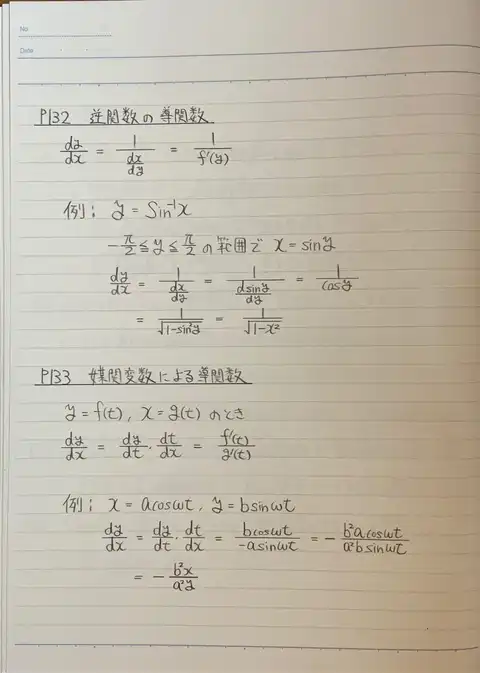 No.
Date
P132 逆関数の導関数
dy/dx = 1/(dx/dy) = 1/f'(y)
例; y = Sin⁻¹x
-π/2 ≦ y ≦ π/2 の範囲で x = sin y
dy/dx = 1/(dx/dy) = 1/(d sin y/dy) = 1/cos y
= 1/√(1-sin²y) = 1/√(1-x²)
P133 媒関変数による導関数
y = f(t), x = g(t) のとき
dy/dx = dy/dt · dt/dx = f'(t)/g'(t)
例; x = a cos ωt, y = b sin ωt
dy/dx = dy/dt · dt/dx = b cos ωt/-a sin ωt = - b²a cos ωt/a²b sin ωt
= - b²x/a²y